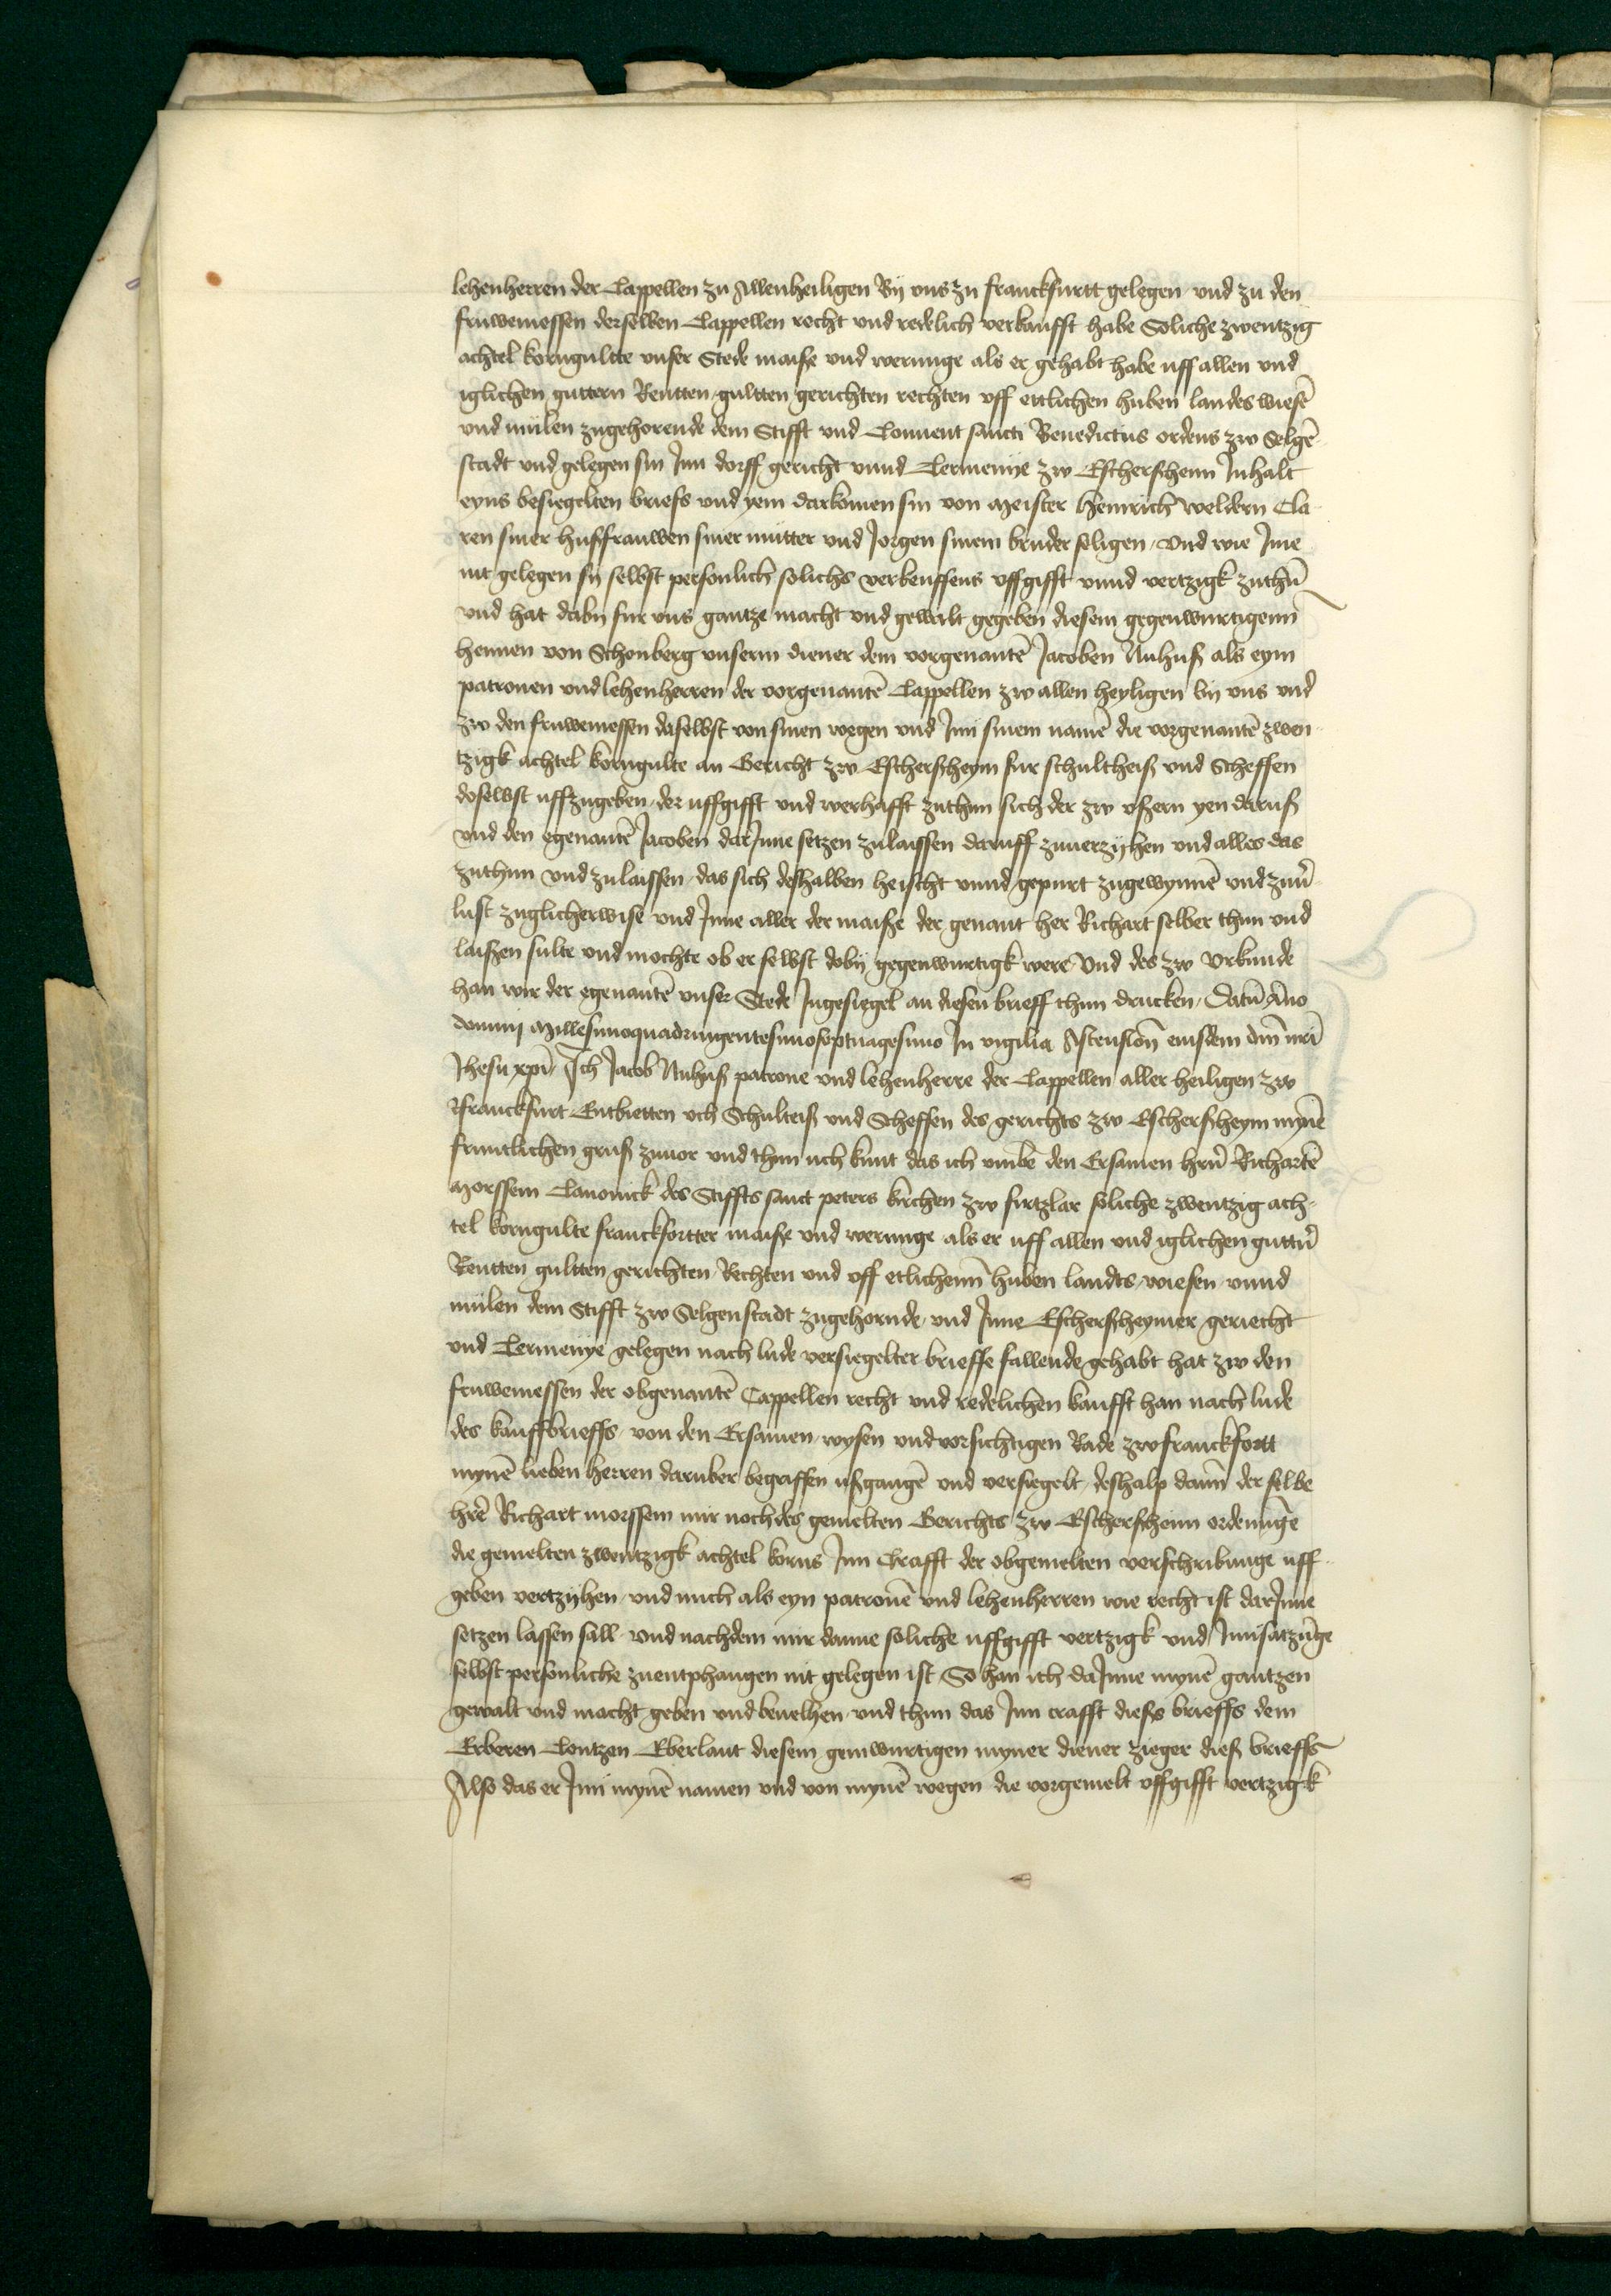 lehenherren der Cappellen zu Allenheiligen By vns zu franckfurtt gelegen und zu den
fruwemessen derselben Cappellen recht und redelich verkaufft habe Soliche zwentzig
achtel korngultte vnser Stede maiße und werunge als er gehabt habe uff allen und
iglichen guttern Rentten gultten gerichten rechten vff ettlichen huben landes wiesē
und mülen zugehorende dem Stifft und Conuent sancti Benedictus ordens zw Selgē
stadt und gelegen sin Inn dorff gericht vnnd Termenye zw Eschersheim Inhalt
eyns besiegelten briefs und yem darkomen sin von Meister Heinrich weldern Cla
ren siner hußfrauwen siner mütter und Jorgen sinem bruder seligen, Und wie Ime
nit gelegen sy selbst personlich solichs verkeuffens vffgifft vnnd vertzigk zuthū
und hat daby fur vns gantze macht und gewalt gegeben diesem gegenwurtigenn
hennen von Schonberg vnserm diener dem vorgenantē Jacoben Nuhuß als eym
patronen und lehenherren der vorgenantē Cappellen zw allen heyligen by vns und
zw den fruwemessen daselbst von sinen wegen und Inn sinem namē die vorgenantē zwen
tzigk achtel korngulte an Gericht zw Eschersheym fur schultheiß und Scheffen
doselbst uffzugeben, der uffgifft und werhafft zuthun sich der zw vßern yen daruß
und den egenantē Jacoben darInne setzen zulaissen daruff zuuerzyhen und alles das
zuthun und zulaissen, das sich deßhalben heischt vnnd gepurt zugewynnē und zuū
lust zuglicherwise und Inne aller der maiße der genant her Richart selber thun und
laißen sulte und mochte ob er selbst doby gegenwurtigk were Und des zw Urkunde
han wir der egenantē vnser Stede Ingesiegel an diesen brieff thun drucken, Datū Año
domini Millesimoquadringentesimoseptuagesimo In vigilia Ascensioñ eiusdem dnī nrī
Jhesu xpī Ich Jacob Nuhuß patrone und lehenherre der Cappellen aller heiligen zw
Franckfurt Entbietten uch Schulteiß und Scheffen des gerichts zw Eschersheym mynē
fruntlichen gruß zuuor und thun uch kunt das ich vmbe den Ersamen hrñ Richartē
Morssem Canonick des Stiffts sanct peters kirchen zw firtzlar soliche zwentzig ach
tel korngulte franckfortter maiße und werunge als er uff allen und iglichen guttrñ
Rentten gultten gerichten Rechten und vff etlichenn huben landts, wiesen vnnd
mülen dem Stifft zw Selgenstadt zugehornde, und Inne Eschersheymer geriecht
und Termenye gelegen nach lude versiegelter brieffe fallende gehabt hat zw den
fruwemessen der obgenantē Cappellen recht und redelichen kaufft han nach lude
des kauffbrieffs, von den Ersamen, wysen und vorsichtigen Rade zw franckfortt
mynē lieben herren daruber begriffen ußgangē und versiegelt, deßhalp dann der selbe
hrē Richart morssem mir noch des gemelten Gerichts zw Eschersheim ordenūge
die gemelten zwentzigk achtel korns Inn Crafft der obgemelten verschribunge uff
geben vertzyhen, und mich als eyn patronē und lehenherren wie recht ist darInne
setzen lassen sall und nachdem mir danne soliche uffgifft vertzigk und Innsatzūge
selbst personliche zuentphangen nit gelegen ist, So han ich daInne mynē gantzen
gewalt und macht geben und beuelhen und thun das Inn crafft dießs brieffs dem
Erberen Contzen Eberlant diesem geinwurtigen myner diener zieger dieß brieffs
Also das er Inn mynē namen und von mynē wegen die vorgemelt vffgifft vertzigk